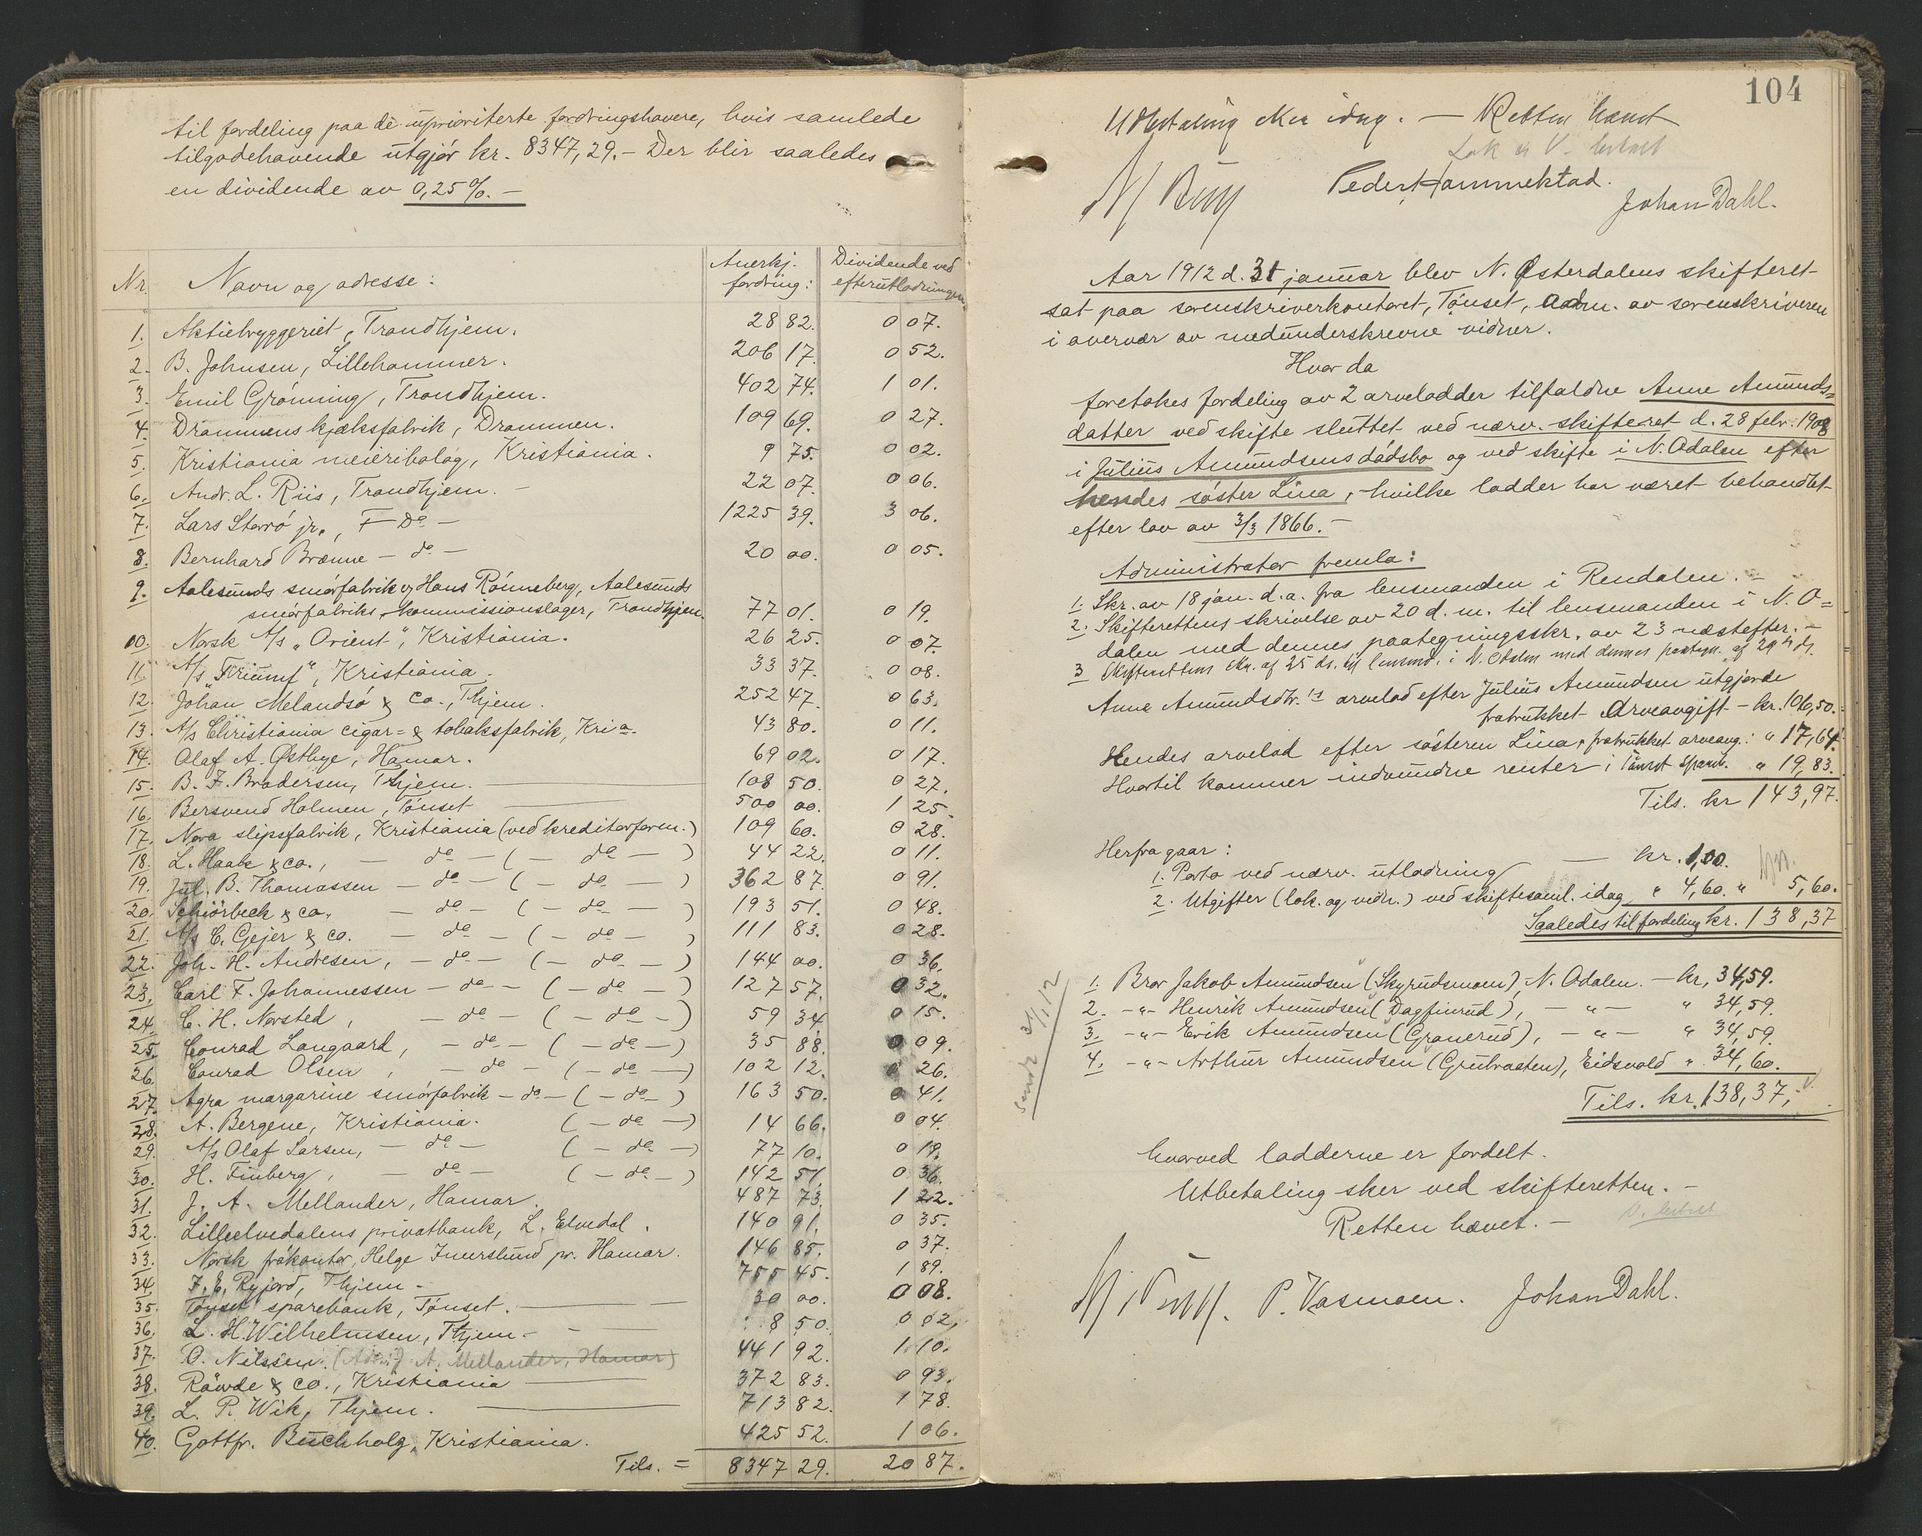 til fordeling paa de uprioriterte fordringshavere, hvis samlede
tilgodehavende utgjør kr. 8347,29.- Der blir saaledes
en dividende av 0,25%. -
Nr. Navn og adresse: Anerkj. fordring: Dividende ved efterutlodningen
1. Aktiebryggeriet, Trondhjem. 28 82. 0 07.
2. B. Johnsen, Lillehammer. 206 17. 0 52.
3. Emil Grøning, Trondhjem. 402 74. 1 01.
4. Drammens kjæksfabrik, Drammen. 109 69. 0 27.
5. Kristiania meieribolag, Kristiania. 9 75. 0 02.
6. Andr. L. Riis, Trondhjem. - 22 07. 0 06.
7. Lars Storrø jr., - do - 1225 39. 3 06.
8. Bernhard Brænne - do - 20 00. 0 05.
9. Aalesunds smørfabrik v/ Hans Rønneberg, Aalesunds
smørfabriks kommissionslager, Trondhjem. 77 01. 0 19.
10. Norsk A/s "Orient", Kristiania. 26 25. 0 07.
11. A/s "Triumf", Kristiania. 33 37. 0 08.
12. Johan Melandsø & Co., Thjem. 252 47. 0 63.
13. A/s Christiania cigar- & tobaksfabrik, Kria. 43 80. 0 11.
14. Olaf A. Østbye, Hamar. 69 02. 0 17.
15. B. F. Brodersen, Thjem. 108 50. 0 27.
16. Bersvend Holmen, Tønset 500 00. 1 25.
17. Nora slipsfabrik, Kristiania (ved kreditorforen.) 109 60. 0 28.
18. L. Haabe & co., - do - ( - do - ) 44 22. 0 11.
19. Jul. B. Thomassen - do - ( - do - ) 362 87. 0 91.
20. Schiørbeck & co. - do - ( - do - ) 193 51. 0 48.
21. A/s C. Gejer & co. - do - ( - do - ) 111 83. 0 28.
22. Joh. H. Andresen, - do - ( - do - ) 144 00. 0 36.
23. Carl F. Johannessen - do - ( - do - ) 127 57. 0 32.
24. C. H. Norsted, - do - ( - do - ) 59 34 0 15.
25. Conrad Langaard, - do - ( - do - ) 35 88. 0 09.
26. Conrad Olsen, - do - ( - do - ) 102 12. 0 26.
27. Agra margarine smørfabrik - do - ( - do - ) 163 50. 0 41.
28. A. Bergene, Kristiania. ( - do - ) 14 66. 0 04.
29. A/s Olaf Larsen, - do - ( - do - ) 77 10. 0 19.
30. H. Finberg, - do - ( - do - ) 142 51. 0 36.
31. J. A. Mellander, Hamar. 487 73. 1 22.
32. Lilleelvedalens privatbank, L. Elvedal. 140 91. 0 35.
33. Norsk frøkontor, Helge Imerslund pr. Hamar. 146 85. 0 37.
34 F. E. Ryjord, Thjem - 755 45. 1 89.
35. Tønset sparebank, Tønset. 30 00. 0 08.
36. L. H. Wilhelmsen, Thjem - 8 50. 0 02.
37. O. Nilssen. A. Mellander, Hamar) 441 92. 1 10.
38. Røwde & co., Kristiania 372 83. 0 93.
39. L. P. Wik, Thjem. 713 82. 1 78.
40. Gottfr. Buchholg, Kristiania. 425 52. 1 06.
Tils. = 8347 29. 20 87.
104
Udbetaling sker idag. - Retten hævet
Peder Hammerstad.
Johan Dahl.
Aar 1912 d. 31 januar blev N. Østerdalens skifteret
sat paa sorenskriverkontoret, Tønset, adm. av sorenskriveren
i overvær av medunderskrevne vidner.
Hvor da
foretokes fordeling av 2 arvelodder tilfaldne Anne Amunds-
datter ved skifte sluttet ved nærv. skifteret d. 28 febr. 1908
i Julius Amundsens dødsbo og ved skifte i N. Odalen efter
hendes søster Lina, hvilke lodder har været behandlet
efter lov av 3/3 1866. -
Administrator fremla:
1. Skr. av 18 jan. d.a. fra lensmanden i Rendalen. -
2. Skifterettens skrivelse av 20 d.m. til lensmanden i N. O=
dalen med dennes paategningsskr. av 23 næstefter. -
3 Skifterettens skr. af 25 ds. til lensmd. i N. Odalen med dennes paategn. af 29 ds.
Anne Amundsdtr.'s arvelod efter Julius Amundsen utgjorde
fratrukket Arveavgift - kr. 106,50.
Hendes arvelod efter søsteren Lina, fratrukket arveavg.: " 17,64.
Hvortil kommer indvundne renter i Tønset Spareb. " 19,83.
Tils. kr 143,97.
Herfra gaar:
1. Porto ved nærv. utlodning - kr. 1,00.
2. Utgifter (lok. og vidn.) ved skiftesaml. idag " 4,60. " 5,60.
Saaledes til fordeling kr. 138,37
sendt 31/1 12
1. Bror Jakob Amundsen (Skyrudsmoen), N. Odalen. - kr. 34,59.
2. -"- Henrik Amundsen (Dagfinrud), - " - " 34,59.
3. -"- Erik Amundsen (Granerud), - " - " 34,59.
4. -"- Arthur Amundsen (Grubraaten), Eidsvold " 34,60.
Tils. kr. 138,37,-
hvorved lodderne er fordelt.
Utbetaling sker ved skifteretten. -
Retten hævet. -
P. Vasmoen. Johan Dahl.